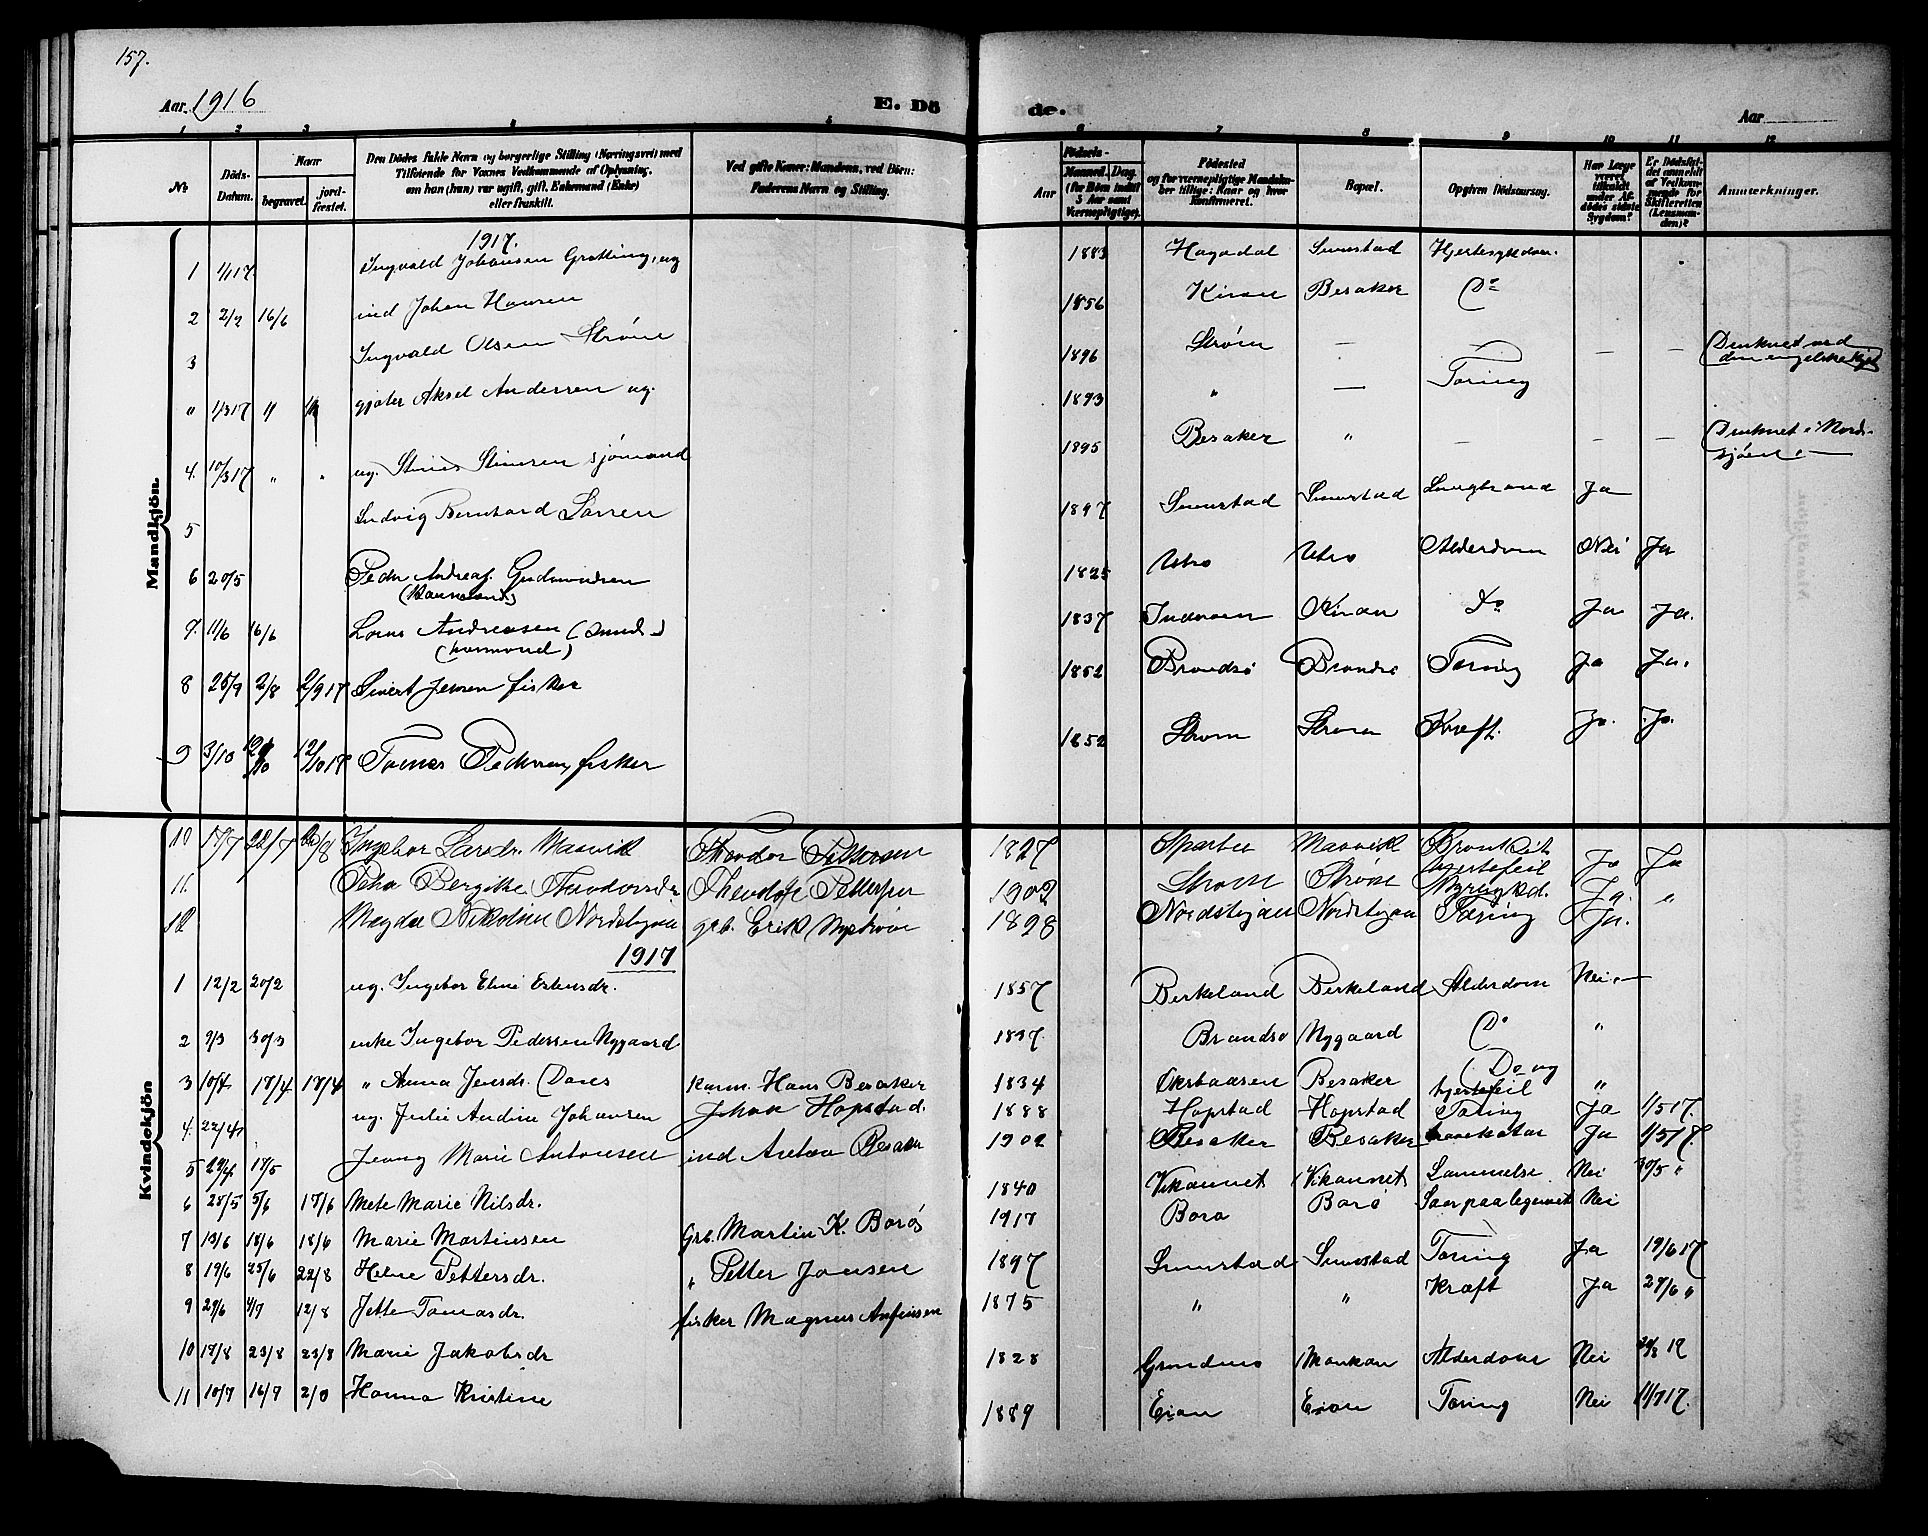 157.
Aar 1916 E. Dö de. Aar
1 2 3 4 5 6 7 8 9 10 11 12
No Döds-Datum. Naar begravet. jordfæstet. Den Dödes fulde Navn og borgerlige Stilling (Næringsvei) med Tilföiende for Voxnes Vedkommende af Oplysning, om han (hun) var ugift, gift, Enkemand (Enke) eller fraskilt. Ved gifte Koner: Mandens, ved Börn: Faderens Navn og Stilling. Aar Födsels- Maaned. Dag. (for Börn indtil 5 Aar samt Værnepligtige). Födested og for værnepligtige Mandskaber tillige: Naar og hvor Konfirmeret. Bopæl. Opgiven Dödsaarsag. Har Læge været tilkaldt under Afdödes sidste Sygdom? Er Dödsfaldet anmeldt af Vedkommende for Skifteretten (Lensmanden)? Anmærkninger.
Mandkjön
1917.
1 1/1 17 Ingvald Johansen Grotting, ug 1883 Hagadal Sumstad Hjertesykdom.
2 2/2 16/6 ind Johan Hansen 1856 Kiran Besaker Do
3 Ingvald Olsen Strøm 1896 Strøm — — — — Druknet ved den engelske kyst
" 1/3 17 " gjæter Aksel Andersen ug. 1893 " — Tæring
4. 10/3 17 " " ug. Stinus Stinusen sjømand 1895 Besaker " — — — Druknet i Nordsjøen. —
5 Ludvig Bernhard Larsen 1897 Sumstad Sumstad Ja
6 20/5 Peder Andreas Gudmundsen 1825 Utro Utro Alderdom Nei Ja
7. 11/6 16/6 Andreasen 1837 Kiran Do Ja Ja.
8 25/9 2/8 2/9 17 Sivert Jensen fisker 1852 Brandsø Brandsø Tæring Ja Ja.
9 3/10 12/10 12/10 17 Tomas Pedersen, fisker 1852 Strøm Strøm Kræft. Ja. Ja.
Kvindekjön
10 17/7 22/7 Ingebor Larsdr. Masvik Theodor Pettersen 1827 Masvik Bronkit hjertefeil Ja Ja
11. Petra Bergitte Theodorsdr Theodor Pettersen 1902 Strøm Strøm Ja. "
12 Magda Nikoline Nordstegaa grb. Erik Nystrøm 1898 Nordstegaa Nordstegaa Tæring Ja.
1917
1 12/2 20/2 ug. Ingebor Eline Estensdr. 1857 Berkeland Berkeland Alderdom Nei. —
2 9/3 30/3 enke Ingebor Pedersen Nygaard 1837. Brandsø Nygaard Do "
3 10/4 17/4 17/4 " Anna Jensdr. Hans Besaker 1834 Besaker Do og hjertefeil "
4. 22/4 ug. Julie Andine Johansen Johan Hopstad. 1888 Hopstad Hopstad Tæring Ja 1/5 17.
5 29/4 17/5 Jenny Marie Antonsen ind Anton Besaker 1902 Besaker Besaker Ja 1/5 17
6 28/5 5/6 17/6 Mete Marie Nilsdr. 1840 Vikannet Vikannet Lammelse Nei 30/5 "
7 13/6 18/6 18/6 Marie Martinsen Grb. Martin K. Borø 1917 Borø Borø Nei
8 19/6 25/6 22/8 Heline Pettersdr. " Petter Jansen 1897 Sumstad Sumstad Tæring Ja 19/6 17
9 29/6 4/7 12/8 Jette Tomasdr. fisker Magnus Anfinsen 1875 " " Kræft Ja 27/6 "
10 17/8 23/8 23/8 Marie Jakobsdr 1828 Alderdom Nei
11 10/7 16/7 2/0 Hanna Kristine 1889 Eian Eian Tæring Nei 11/7 17.